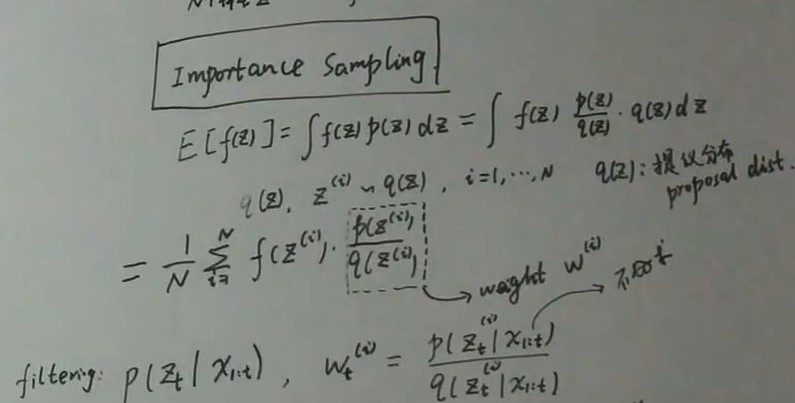 Importance Sampling
E[f(z)] = ∫f(z) p(z) dz = ∫ f(z) p(z)/q(z) · q(z) dz
q(z), z⁽ⁱ⁾ ~ q(z), i=1,⋯,N q(z): 提议分布
proposal dist.
= 1/N ∑ᵢ₌ᴺ f(z⁽ⁱ⁾) · p(z⁽ⁱ⁾)/q(z⁽ⁱ⁾)
waght w⁽ⁱ⁾
filtering: p(zₜ | x₁:ₜ), wₜ⁽ⁱ⁾ = p(zₜ⁽ⁱ⁾ | x₁:ₜ)/q(zₜ⁽ⁱ⁾ | x₁:ₜ)